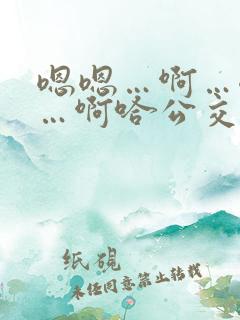 嗯嗯…啊…
…啊哈公交
纸砚
未经同意禁止转载